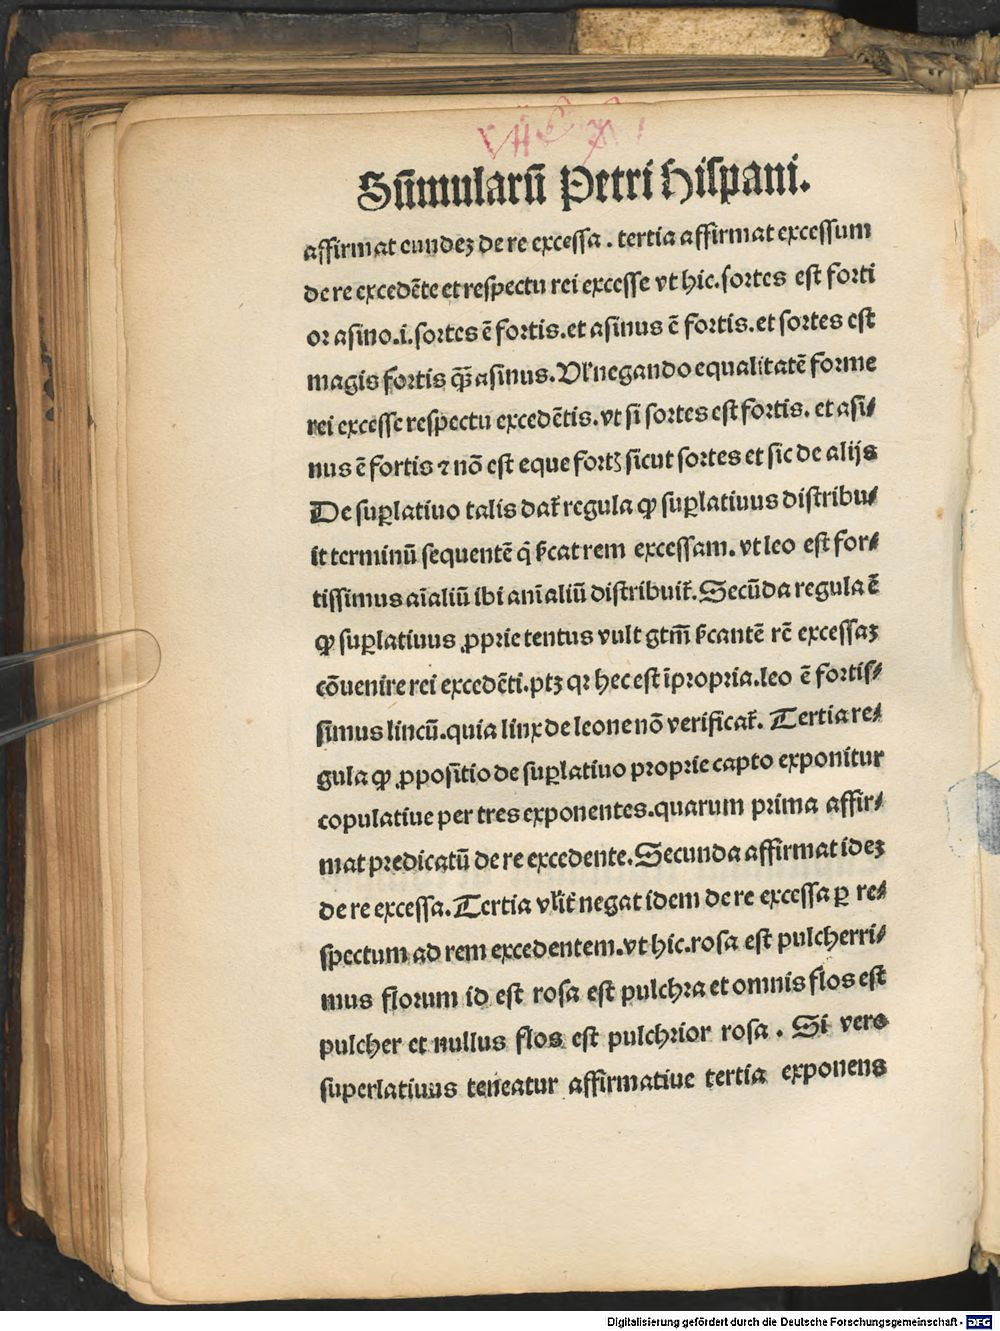 Sūmularū Petri hispani.
affirmat eundeꝫ de re excessa. tertia affirmat excessum
de re excedēte et respectu rei excesse vt hic. sortes est forti
or asino.i. sortes ē fortis. et asinus ē fortis. et sortes est
magis fortis q̄ꝫ asinus. Vl' negando equalitatē forme
rei excesse respectu excedētis. vt si sortes est fortis. et asi⸗
nus ē fortis ⁊ nō est eque fortꝫ sicut sortes et sic de alijs
De suꝑlatiuo talis dat̄ regula ꝙ suꝑlatiuus distribu⸗
it terminū sequentē q̇ s̄cat rem excessam. vt leo est for⸗
tissimus aīaliū ibi anīaliū distribuit̄. Secūda regula ē
ꝙ suꝑlatiuus ꝓprie tentus vult gtm̄ s̄cantē rē excessaꝫ
cōuenire rei excedēti. ptꝫ qꝛ hec est īpropria. leo ē fortis⸗
simus lincū. quia linx de leone nō verificat̄. Tertia re⸗
gula ꝙ ꝓpositio de suꝑlatiuo proprie capto exponitur
copulatiue per tres exponentes. quarum prima affir⸗
mat predicatū de re excedente. Secunda affirmat ideꝫ
de re excessa. Tertia vl'it̄ negat idem de re excessa ꝑ re⸗
spectum ad rem excedentem. vt hic. rosa est pulcherri⸗
mus florum id est rosa est pulchra et omnis flos est
pulcher et nullus flos est pulchrior rosa. Si vero
superlatiuus teneatur affirmatiue tertia exponens
Digitalisierung gefördert durch die Deutsche Forschungsgemeinschaft - DFG